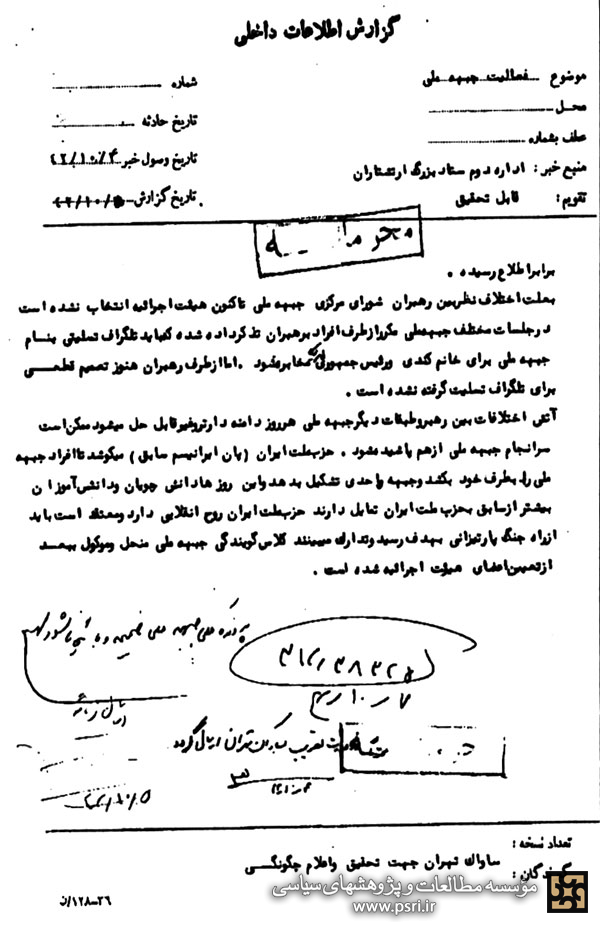 گزارش اطلاعات داخلی
موضوع فعالیت جبهه ملی
شماره
محل
تاریخ حادثه
عطف بشماره
تاریخ وصول خبر ۴۲/۱۰/۴
منبع خبر: اداره دوم ستاد بزرگ ارتشتاران
تقویم: قابل تحقیق
تاریخ گزارش ۴۲/۱۰/۵
محرمانه
برابر اطلاع رسیده .
بعلت اختلاف نظر بین رهبران شورای مرکزی جبهه ملی تاکنون هیئت اجرائیه انتخاب نشده است
در جلسات مختلف جبهه ملی مکرر از طرف افراد برهبران تذکر داده شده که باید تلگراف تسلیتی بنام
جبهه ملی برای خانم کندی ورئیس جمهوری مخابره شود . اما از طرف رهبران هنوز تصمیم قطعی
برای تلگراف تسلیت گرفته نشده است .
آتش اختلافات بین رهبر وطبقات دیگر جبهه ملی هر روز دامنه دارتر وغیر قابل حل میشود ممکن است
سرانجام جبهه ملی از هم پاشیده شود . حزب ملت ایران (پان ایرانیسم سابق) میکوشد تا افراد جبهه
ملی را بطرف خود بکشد وجبهه واحدی تشکیل بدهد واین روزها دانش جویان ودانش آموزان
بیشتر از سابق بحزب ملت ایران تمایل دارند حزب ملت ایران روح انقلابی دارد ومعتقد است باید
از راه جنگ پارتیزانی بهدف رسید وتدارک میبینند کلاس گویندگی جبهه ملی منحل وموکول ببعد
از تعیین اعضای هیئت اجرائیه شده است .
تعداد نسخه :
گیرندگان : ساواک تهران جهت تحقیق واعلام چگونگی
۲۶-۱۲۸/ن
موسسه مطالعات و پژوهشهای سیاسی
www.psri.ir